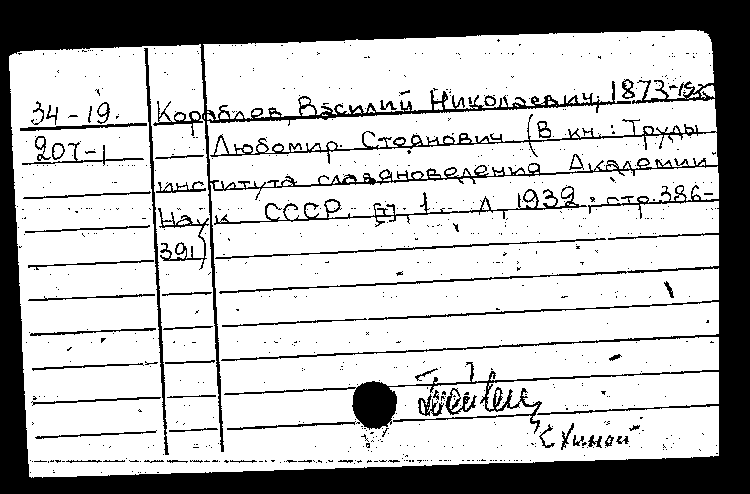 34-19. Кораблев, Василий Николаевич, 1873-1936
20т-1 Любомир Стоянович (В кн.: Труды
института славяноведения Академии
Наук СССР. [т], 1. Л, 1932, стр. 386-
391)